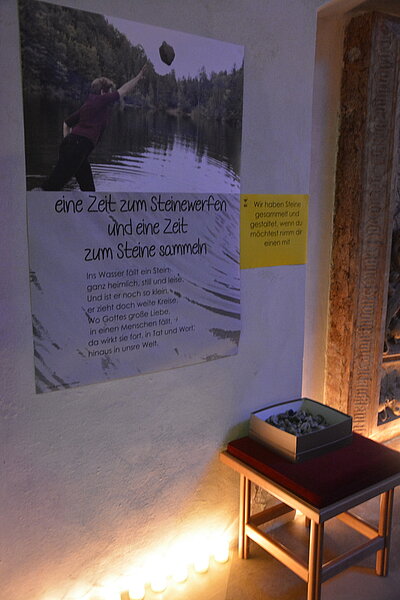 eine Zeit zum Steinewerfen
und eine Zeit
zum Steine sammeln
Ins Wasser fällt ein Stein,
ganz heimlich, still und leise.
Und ist er noch so klein,
er zieht doch weite Kreise.
Wo Gottes große Liebe,
in einen Menschen fällt,
da wirkt sie fort, in Tat und Wort,
hinaus in unsre Welt.
Wir haben Steine
gesammelt und
gestaltet, wenn du
möchtest nimm dir
einen mit